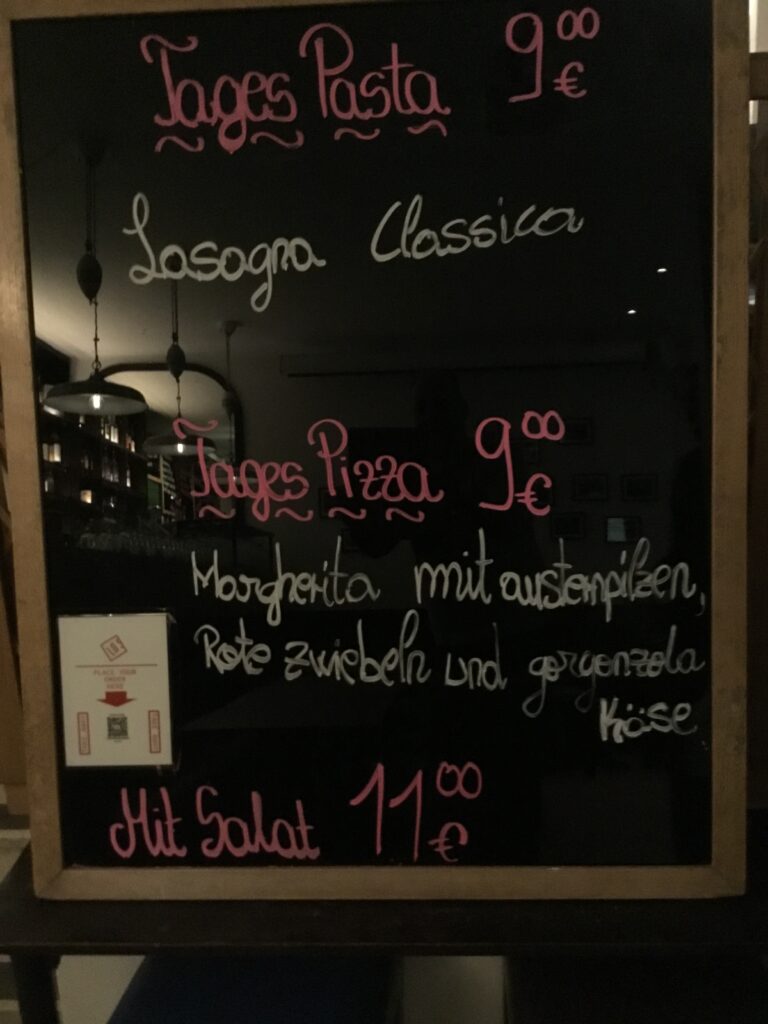 Tages Pasta 9 00 €
Lasagna Classica
Tages Pizza 9 00 €
Margherita mit austernpilzen,
Rote zwiebeln und gorgonzola
Käse
PLACE YOUR
ORDER
HERE
Mit Salat 11 00 €